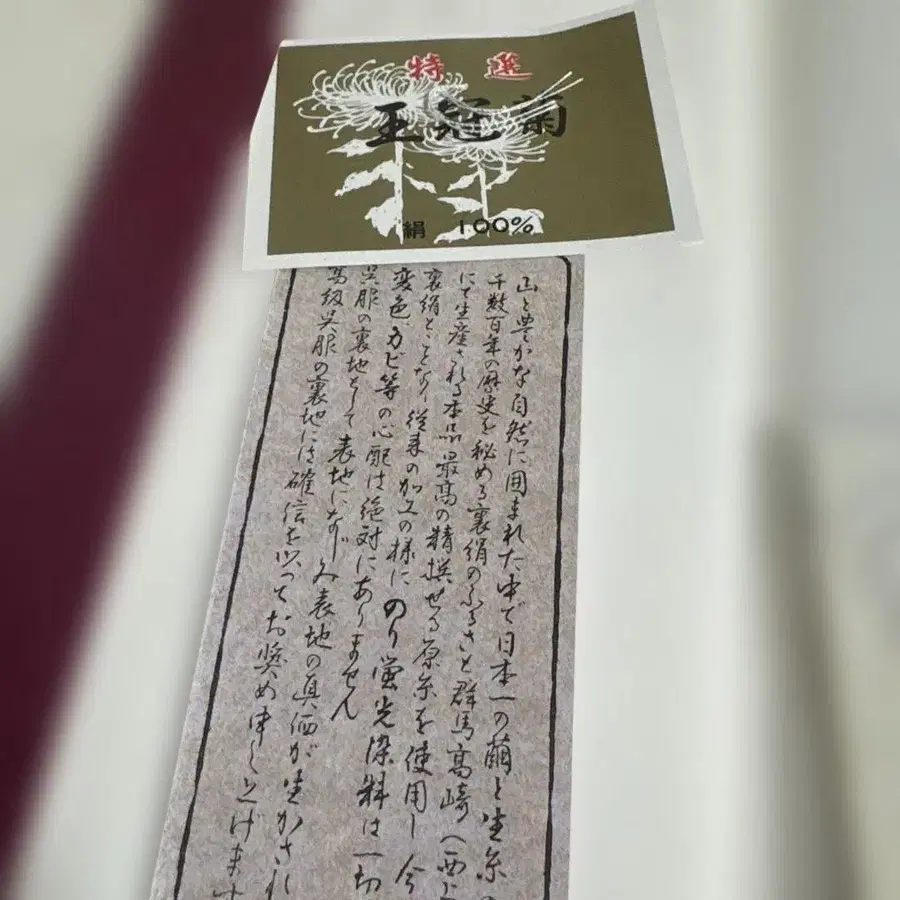 特選
王冠菊
絹 100%
山と豊かな自然に囲まれた中で日本一の繭と生糸の
千数百年の歴史を秘める裏絹のふるさと群馬高崎(西上
にて生産される本品は最高の精撰せる原糸を使用し今
裏絹とことなり従来の加工の様にのり蛍光染料は一切
変色、カビ等の心配は絶対にありません
呉服の裏地として表地になじみ表地の真価が生かされ
高級呉服の裏地には確信を以ってお奨め申し上げます